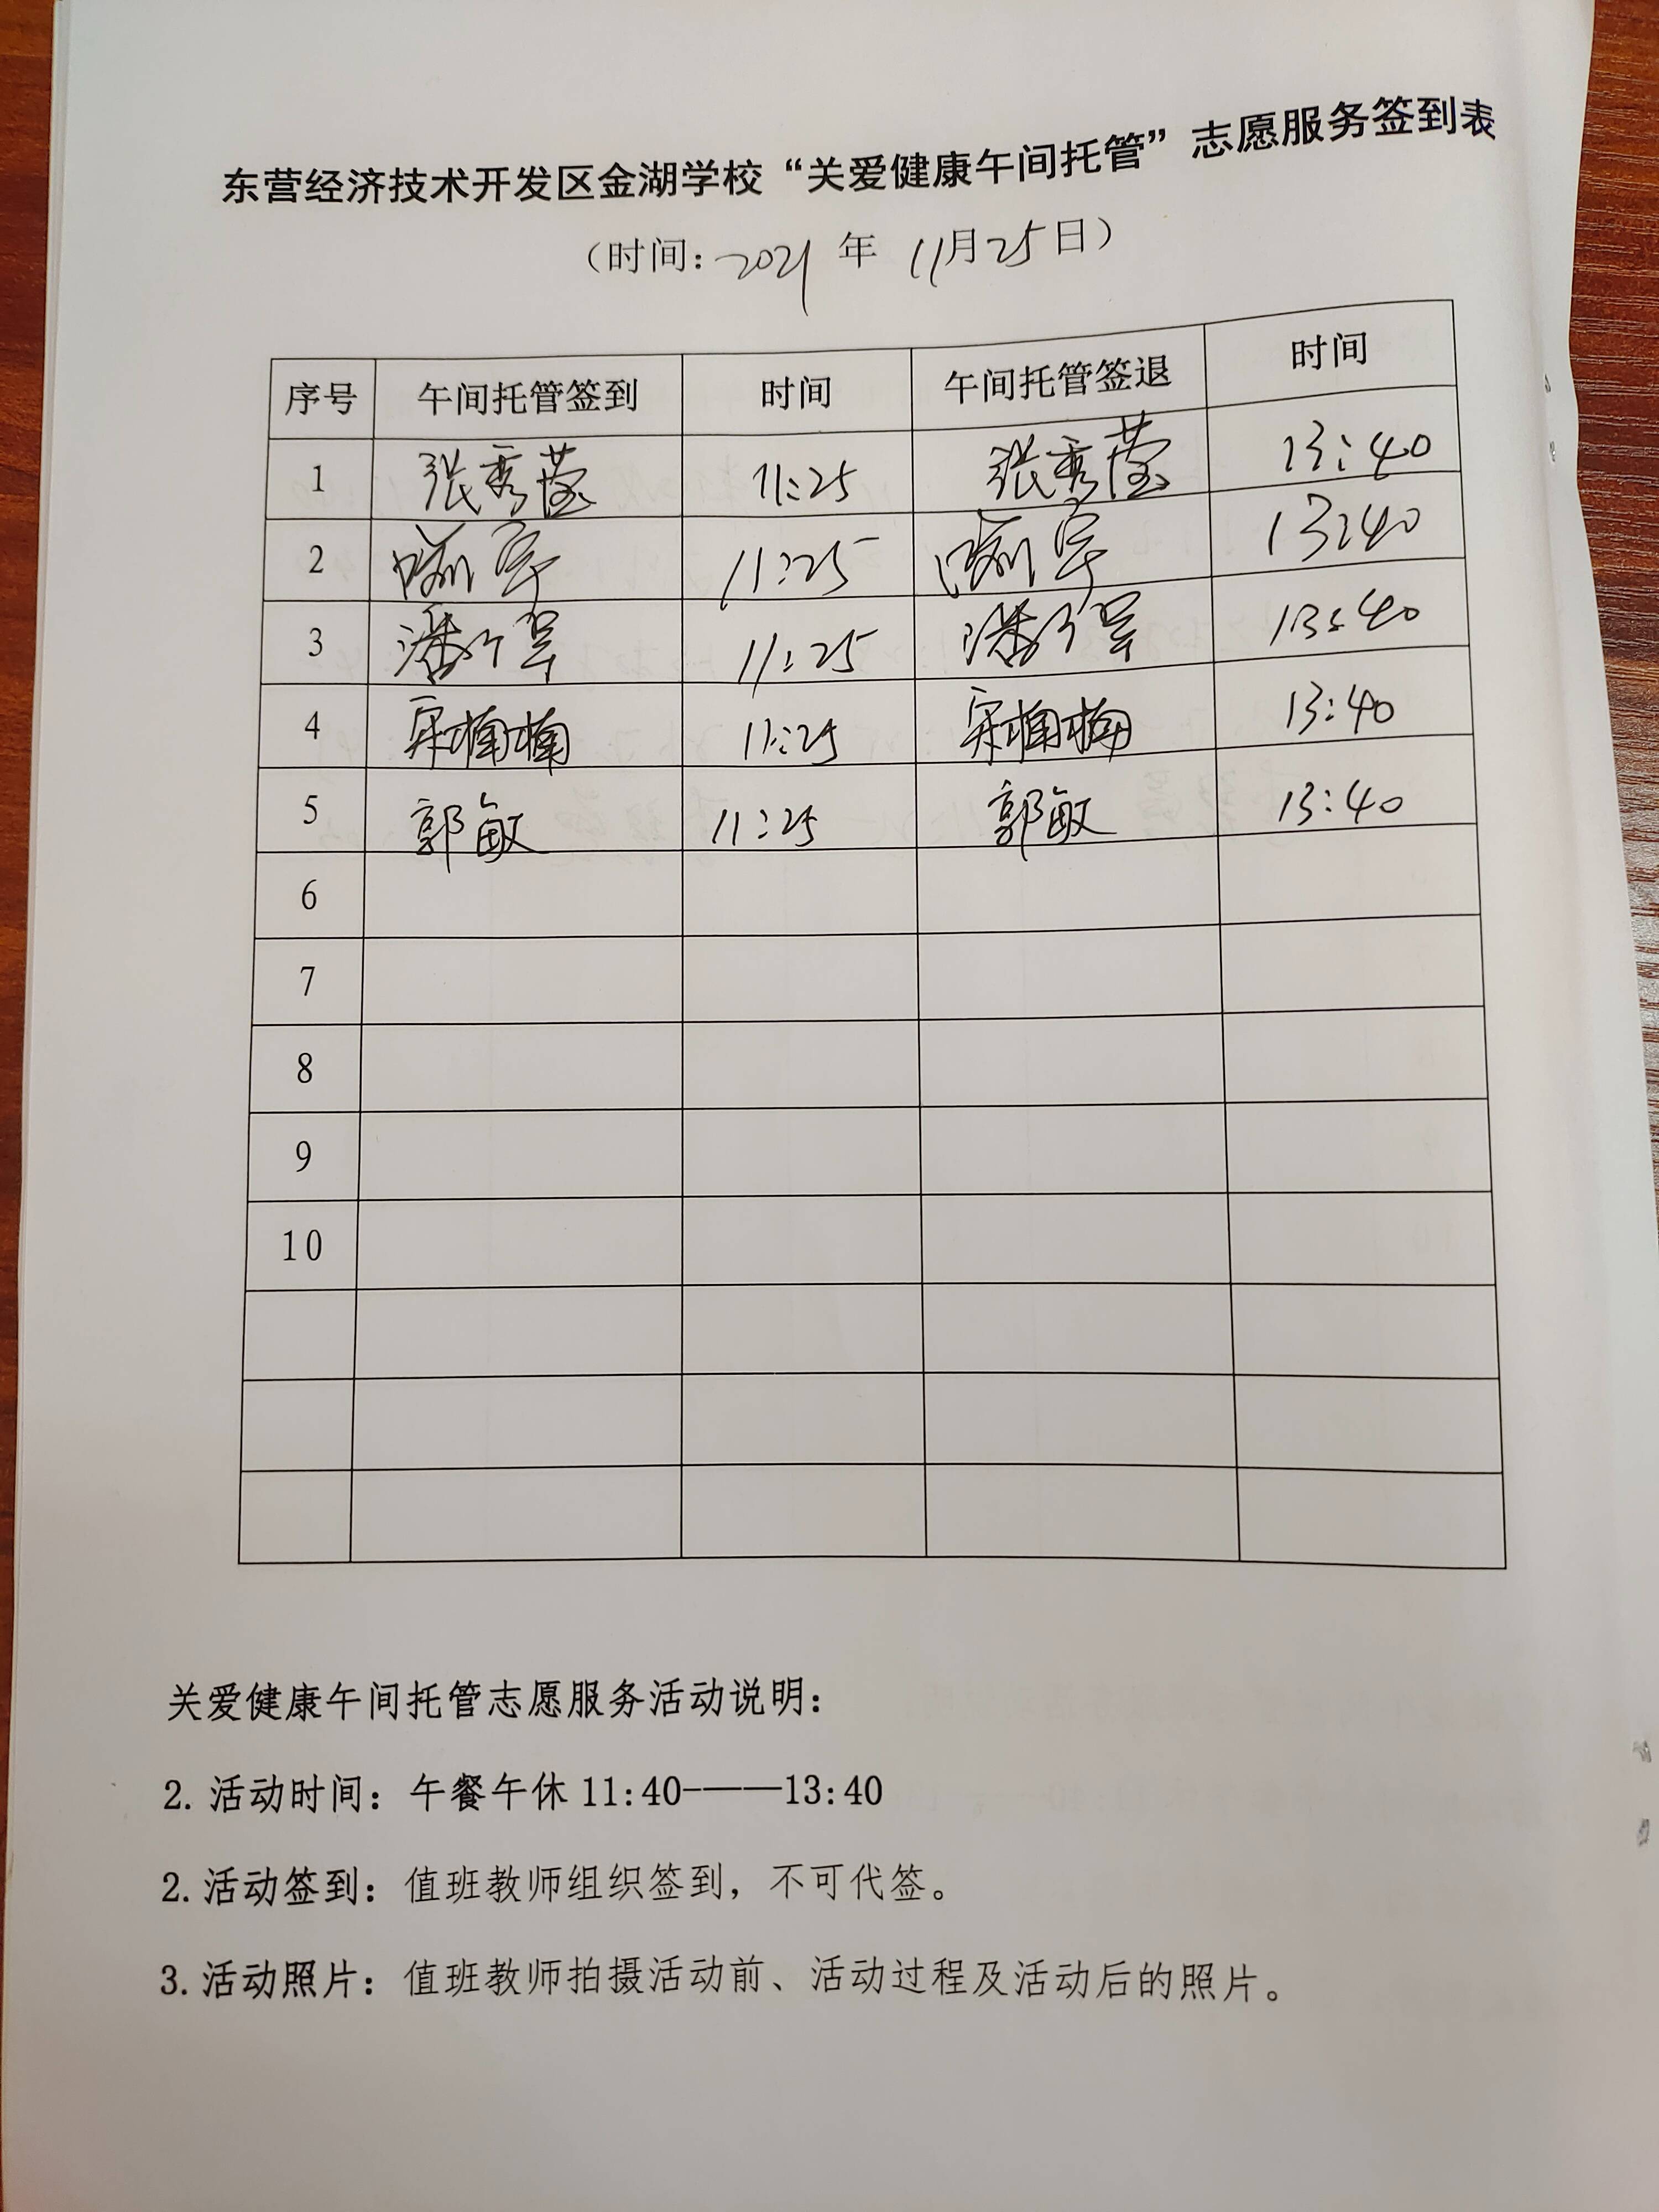 东营经济技术开发区金湖学校“关爱健康午间托管”志愿服务签到表
（时间：2021年11月25日）
序号 午间托管签到 时间 午间托管签退 时间
1 张秀莹 11:25 张秀莹 13:40
2 11:25 13:40
3 潘 11:25 潘 13:40
4 宋楠楠 11:25 宋楠楠 13:40
5 郭敏 11:25 郭敏 13:40
6
7
8
9
10
关爱健康午间托管志愿服务活动说明：
2. 活动时间：午餐午休 11:40-——13:40
2. 活动签到：值班教师组织签到，不可代签。
3. 活动照片：值班教师拍摄活动前、活动过程及活动后的照片。